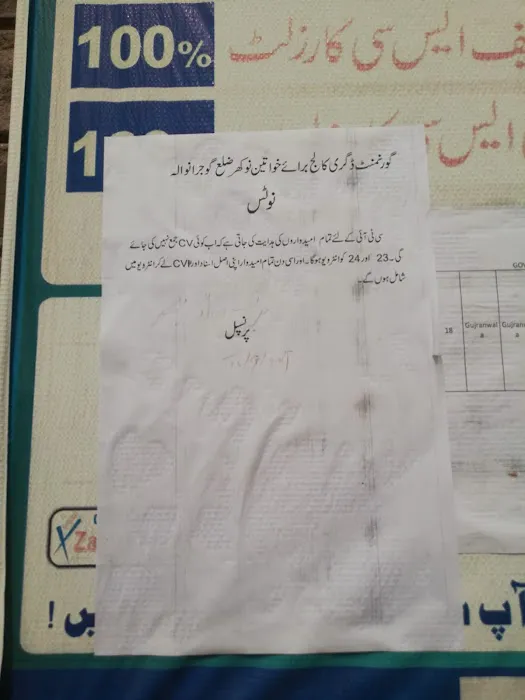 100%
ایس سی کا رزلٹ
ایس سی کا
گورنمنٹ ڈگری کالج برائے خواتین نوکھر ضلع گوجرانوالہ
نوٹس
سی ٹی آئی کے لئے تمام امیدواروں کی ہدایت کی جاتی ہے کہ اب کوئی CV جمع نہیں کی جائے
گی۔ 23 اور 24 کو انٹرویو ہوگا۔ اور اسی دن تمام امیدوار اپنی اصل اسناد اور CV لے کر انٹرویو میں
شامل ہوں گے۔
پرنسپل
18
Gujranwal
a
Za
آپ
!